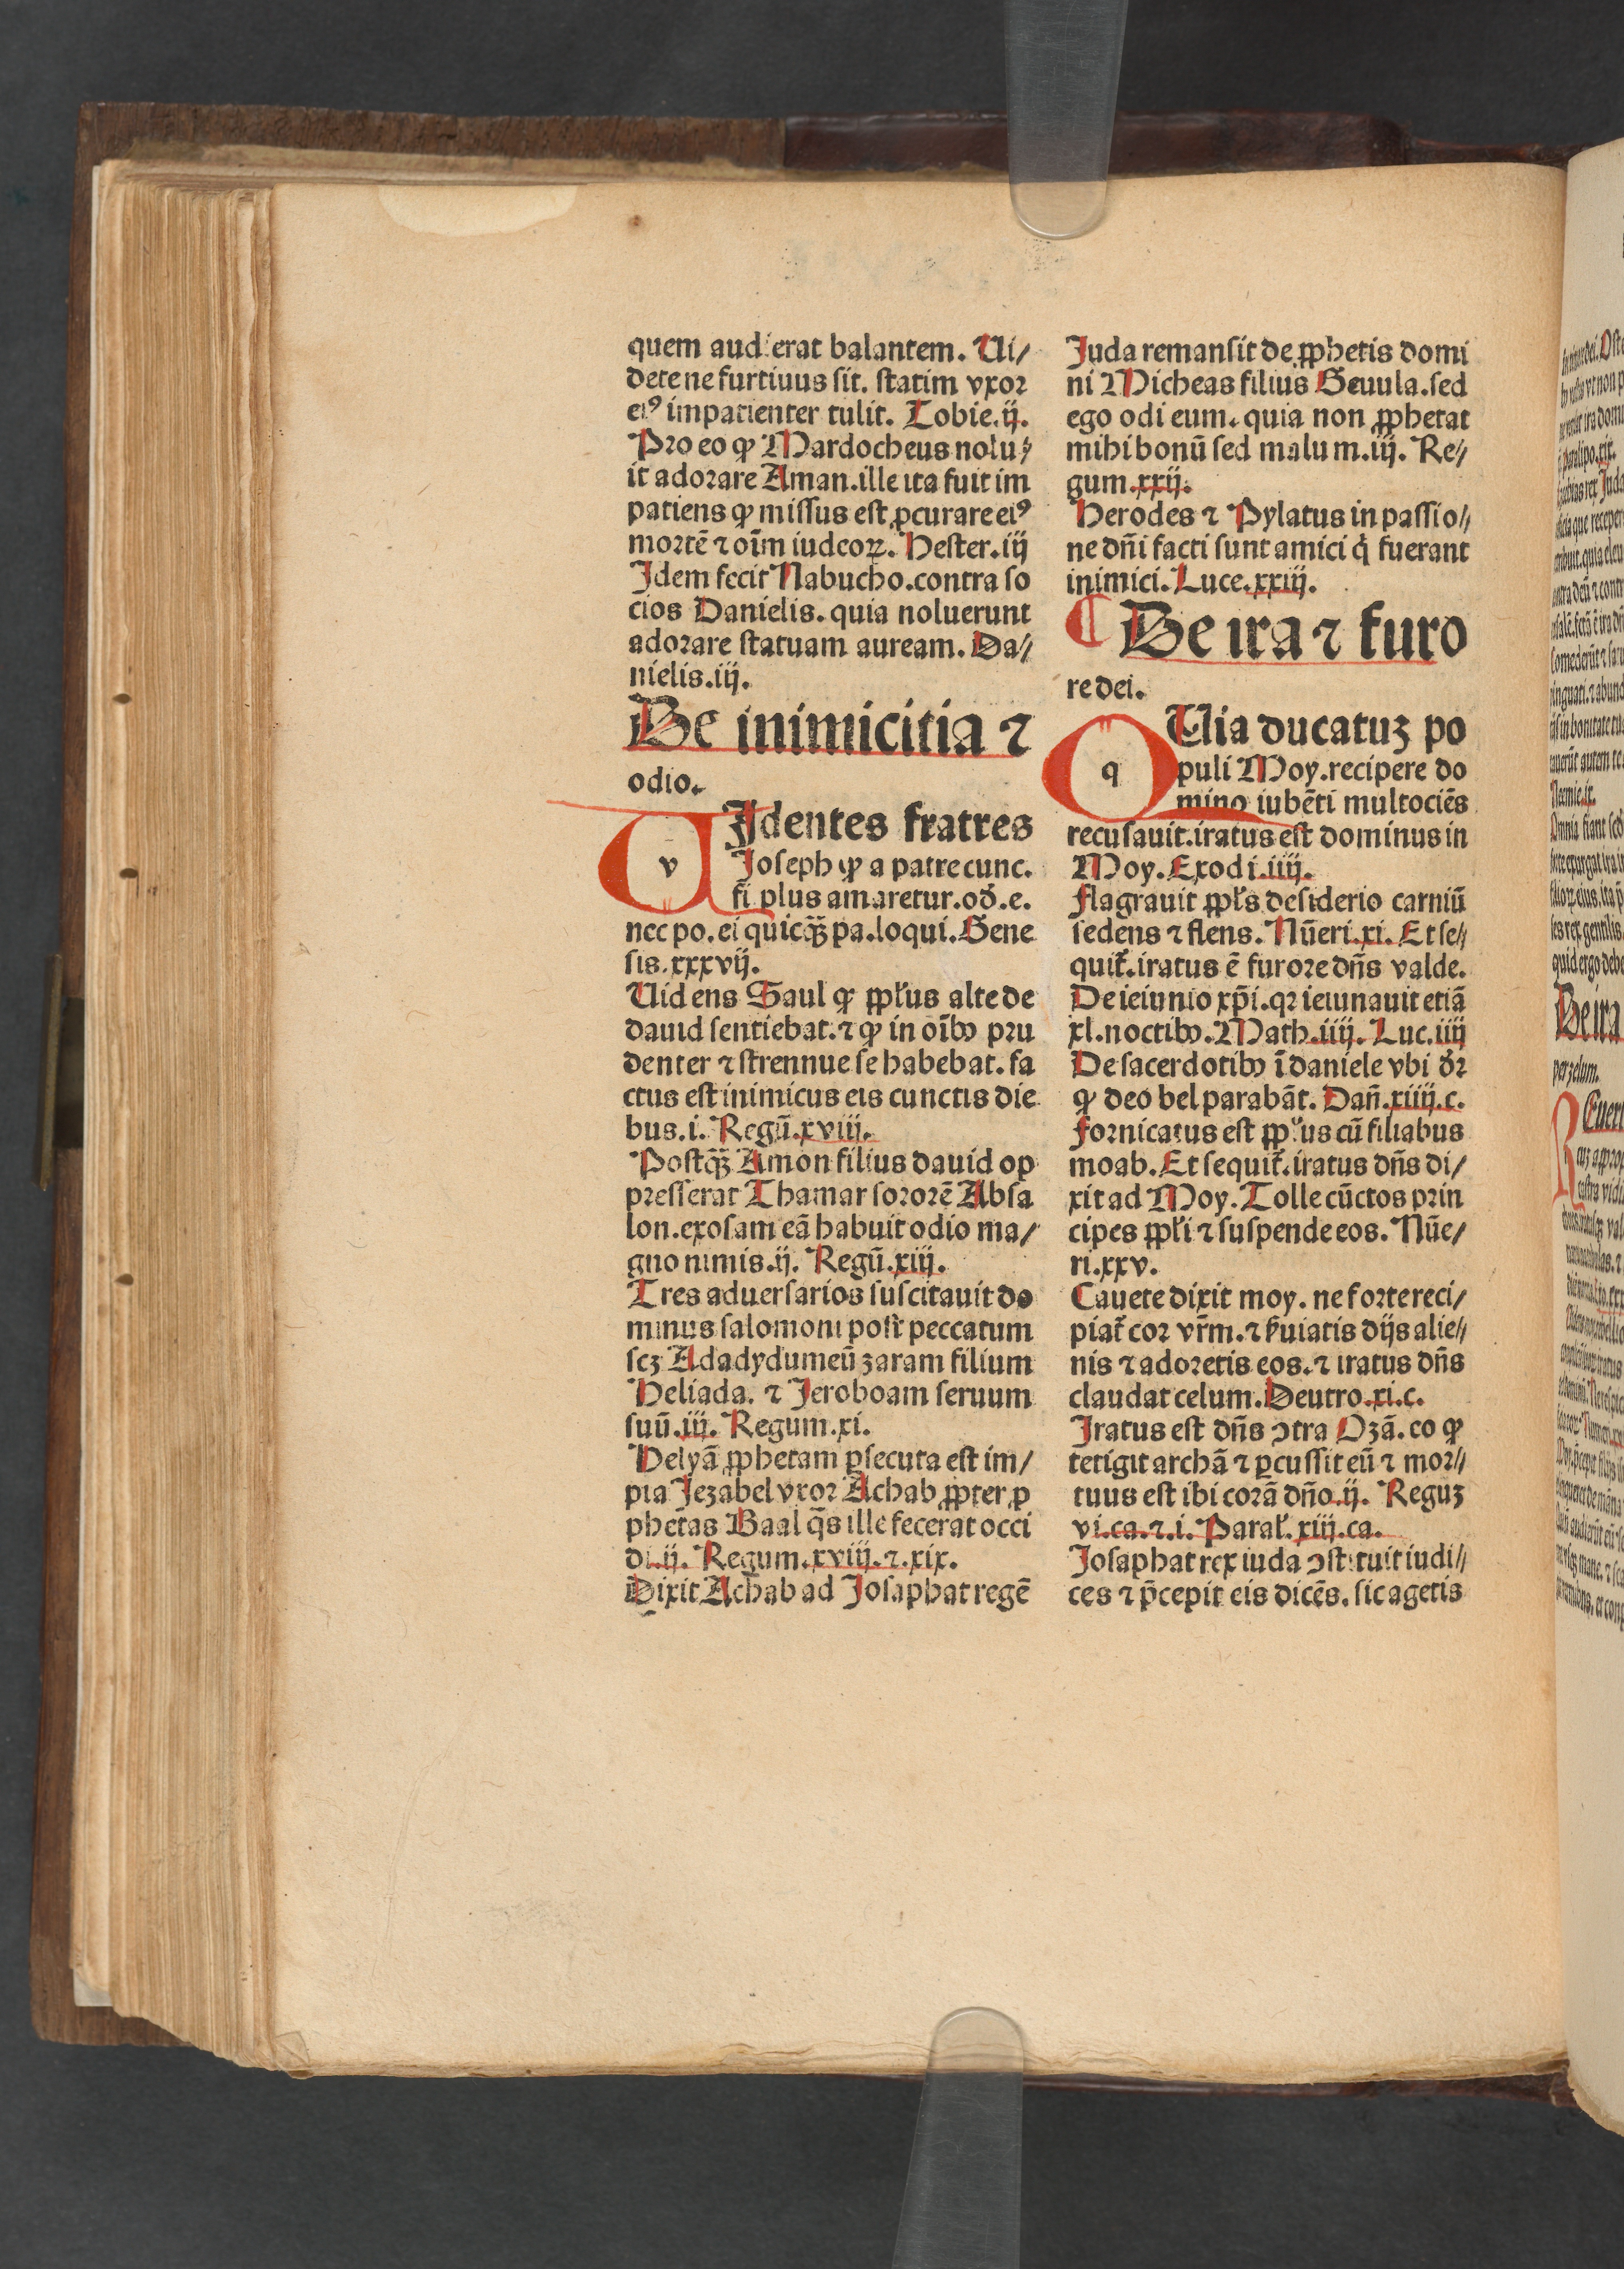 quem audierat balantem. Ui/
dete ne furtiuus sit. statim vxor
eiꝰ impatienter tulit. Tobie.ij.
Pro eo ꝙ Mardocheus nolu/
it adorare Aman.ille ita fuit im
patiens ꝙ missus est ꝓcurare eiꝰ
mortē ⁊ oīm iudeoꝝ. Hester.iij
Idem fecit Nabucho.contra so
cios Danielis. quia noluerunt
adorare statuam auream. Da//
nielis.iij.
De inimicitia ⁊
odio.
v
Identes fratres
Joseph ꝙ a patre cunc.
fi plus amaretur.ođ.e.
nec po.ei quicq̄ꝫ pa.loqui.Gene
sis.xxxvij.
Uidens Saul ꝙ ppl'us alte de
dauid sentiebat.⁊ ꝙ in oībꝰ pru
denter ⁊ strennue se habebat.fa
ctus est inimicus eis cunctis die
bus.i. Regū.xviij.
Postq̄ꝫ Amon filius dauid op
presserat Thamar sororē Absa
lon.exosam eā habuit odio ma/
gno nimis.ij. Regū.xiij.
Tres aduersarios suscitauit do
minus salomoni post peccatum
scꝫ Adadydumeū zaram filium
Heliada. ⁊ Jeroboam seruum
suū.iij. Regum.xi.
Helyā ꝓphetam ꝑsecuta est im/
pia Jezabel vxor Achab ꝓpter ꝓ
phetas Baal q̄s ille fecerat occi
di.ij. Regum.xviij.⁊.xix.
Dixit Achab ad Josaphat regē
Juda remansit de ꝓphetis domi
ni Micheas filius Geuula.sed
ego odi eum.quia non ꝓphetat
mihi bonū sed malum.iij. Re//
gum.xxij.
Herodes ⁊ Pylatus in passio//
ne dn̄i facti sunt amici q̇ fuerant
inimici. Luce.xxiij.
De ira ⁊ furo
re dei.
q
Uia ducatuꝫ po
puli Moy.recipere do
mino iubēti multociēs
recusauit.iratus est dominus in
Moy. Exodi.iiij.
Flagrauit ppl's desiderio carniū
sedens ⁊ flens. Nūeri.xi. Et se//
quit̄.iratus ē furore dn̄s valde.
De ieiunio xp̄i.qꝛ ieiunauit etiā
xl.noctibꝰ.Math.iiij. Luc.iiij
De sacerdotibꝰ ī daniele vbi dr̄
ꝙ deo bel parabāt. Dan̄.xiiij.c.
Fornicatus est ppl'us cū filiabus
moab. Et sequit̄.iratus dn̄s di/
xit ad Moy. Tolle cūctos prin
cipes ppl'i ⁊ suspende eos. Nūe/
ri.xxv.
Cauete dixit moy. ne forte reci/
piat̄ cor vr̄m.⁊ ẜuiatis dijs alie//
nis ⁊ adoretis eos.⁊ iratus dn̄s
claudat celum. Deutro.xi.c.
Iratus est dn̄s ↄtra Ozā. eo ꝙ
tetigit archā ⁊ ꝑcussit eū ⁊ mor//
tuus est ibi corā dn̄o.ij. Reguꝫ
vi.ca.⁊.i. Paral'. xiij.ca.
Josaphat rex iuda ↄstituit iudi//
ces ⁊ p̄cepit eis dicēs. sic agetis